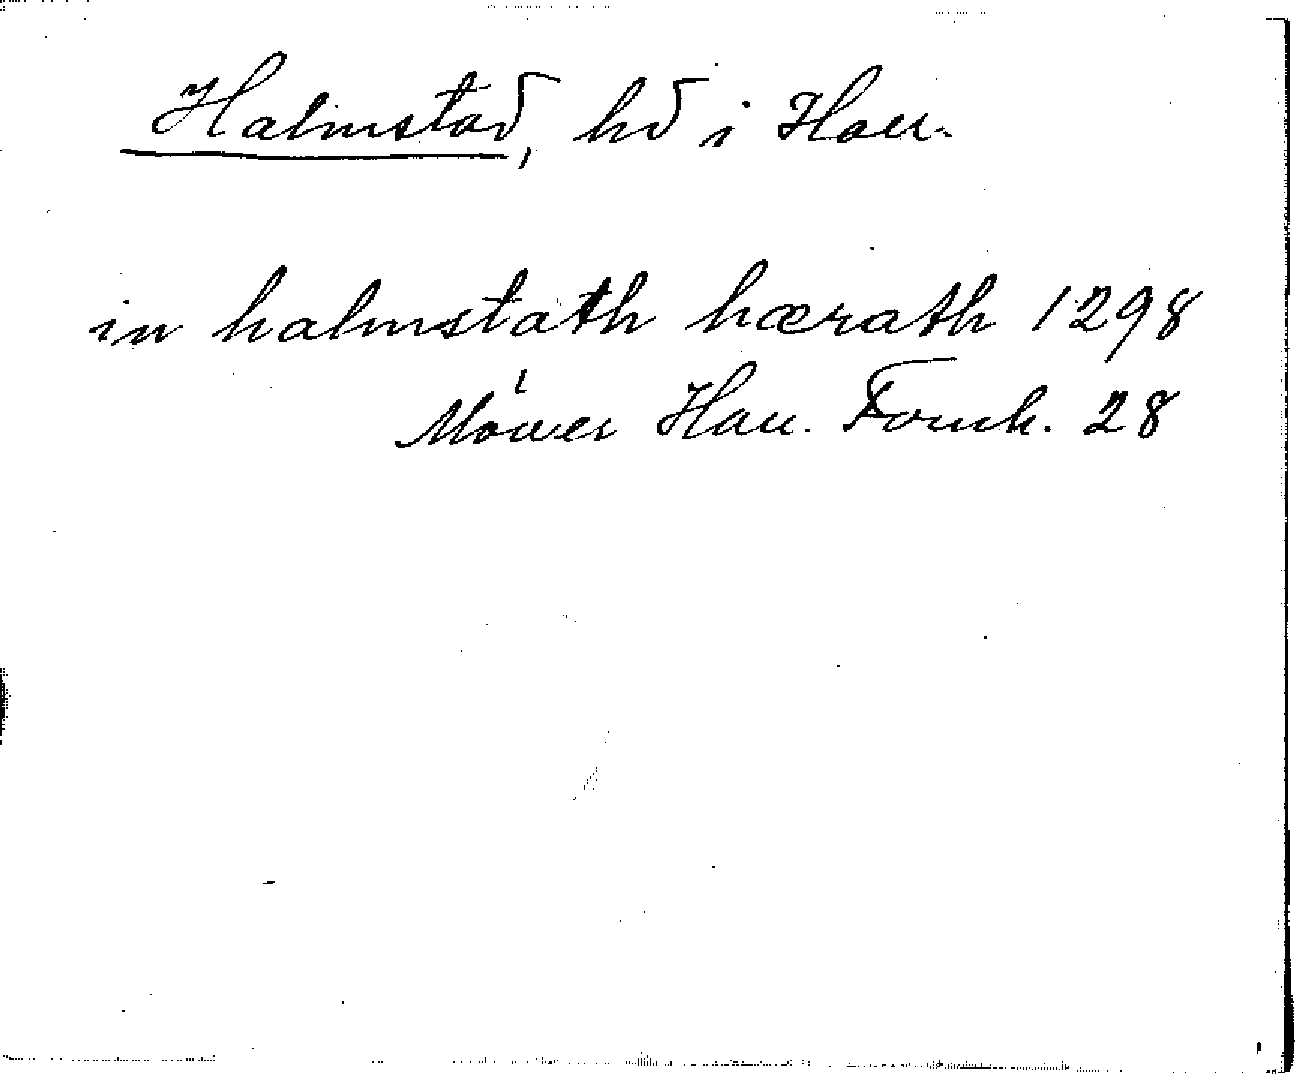 Halmstad, hd i Hall.
in halmstath hærath 1298
Möwes Hall. Fornh. 28